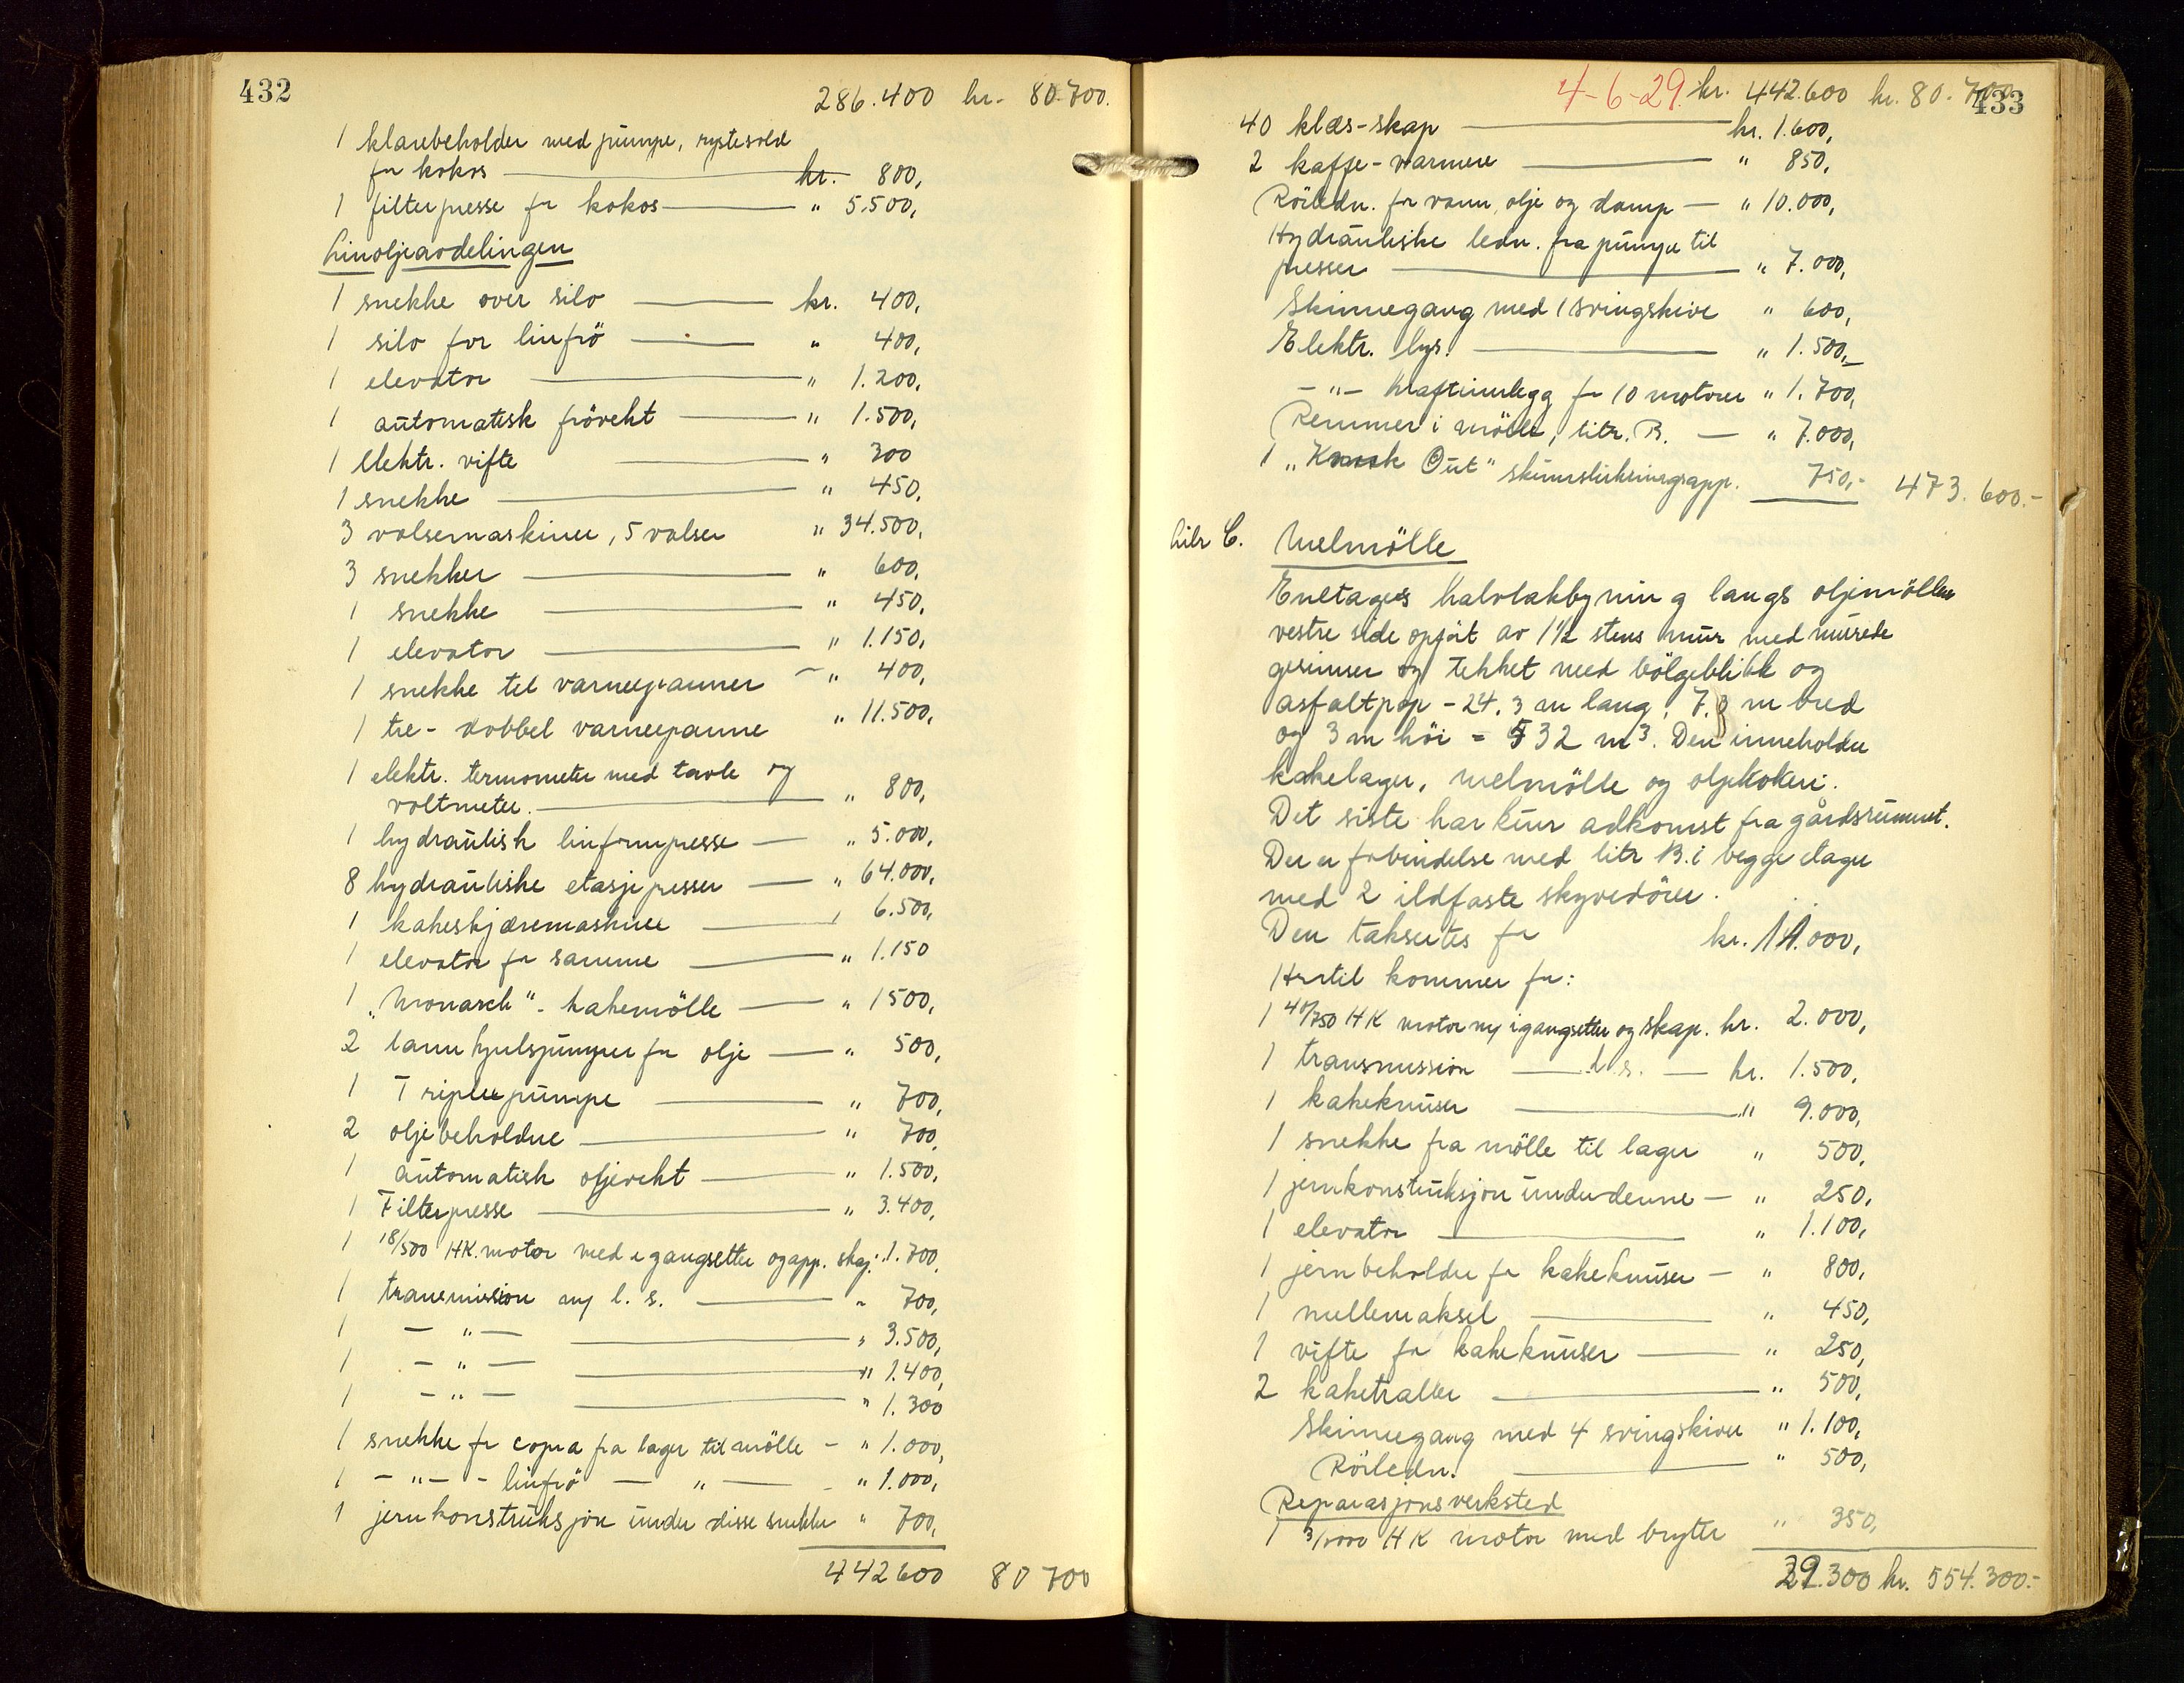 432
286.400 kr. 80.700.
1 klarebeholder med pumpe, rystesold
for kokos kr. 800,
1 filterpresse for kokos " 5.500,
Linoljeavdelingen
1 snekke over silo kr. 400,
1 silo for linfrö " 400,
1 elevator " 1.200,
1 automatisk frövekt " 1.500,
1 elektr. vifte " 300
1 snekke " 450,
3 valsemaskiner, 5 valser " 34.500,
3 snekker " 600,
1 snekke " 450,
1 elevator " 1.150,
1 snekke til varmepanner " 400,
1 tre-dobbel varmepanne " 11.500,
1 elektr. termometer med tavle og
voltmeter. " 800,
1 hydraulisk linformpresse " 5.000,
8 hydrauliske etasjepresser " 64.000,
1 kakeskjæremaskine " 6.500,
1 elevator for samme " 1.150
1 "Monarch"-kakemölle " 1500,
2 tannhjulspumper for olje " 500,
1 Triplexpumpe " 700,
2 oljebeholdere " 700,
1 automatisk oljevekt " 1.500,
1 Filterpresse " 3.400,
1 18/500 HK. motor med igangsetter og app. skap. 1.700,
1 transmission m/ l. s. " 700,
1 — " — " 3.500,
1 — " — " 1.400,
1 — " — " 1.300
1 snekke for copra fra lager til mölle - " 1.000,
1 - " - - linfrö — " — - " 1.000,
1 jernkonstruksjon under disse snekker " 700,
442600 80700
433
4-6-29. kr. 442.600 kr. 80.700
40 klæs-skap kr. 1.600,
2 kaffe-varmere " 850,
Rörledn. for vann, olje og damp — " 10.000,
Hydrauliske ledn. fra pumpe til
presser " 7.000,
Skinnegang med 1 svingskive " 600,
Elektr. lys. " 1.500,-
- " - kraftinnlegg for 10 motorer " 1.700,
Remmer i mölle, litr. B. — " 7.000,
1 "Knock Out" skumslukningsapp. 750,- 473.600.-
Litr C. Melmölle
Enetages halvtakbygning langs oljemöllens
vestre side opfört av 1½ stens mur med murede
gesimser og tekket med bölgeblikk og
asfaltpap - 24.3 m lang, 7.3 m bred
og 3 m höi = 532 m³. Den inneholder
kakelager, melmölle og oljekokeri.
Det siste har kun adkomst fra gårdsrummet.
Der er forbindelse med litr B. i begge etager
med 2 ildfaste skyvedörer.
Den takseres for kr. 14.000,
Hertil kommer for:
1 40/750 HK motor m/ igangsetter og skap. kr. 2.000,
1 transmission — l. s. — kr. 1.500,
1 kakeknuser " 9.000,
1 snekke fra mölle til lager " 500,
1 jernkonstruksjon under denne — " 250,
1 elevator " 1.100,
1 jernbeholder for kakeknuser — " 800,
1 mellemaksel " 450,
1 vifte for kakeknuser " 250,
2 kaketraller " 500,
Skinnegang med 4 svingskiver " 1.100,
Rörledn. " 500,
Reparasjonsverksted
1 3/1000 HK motor med bryter " 350,
29.300 kr. 554.300.-